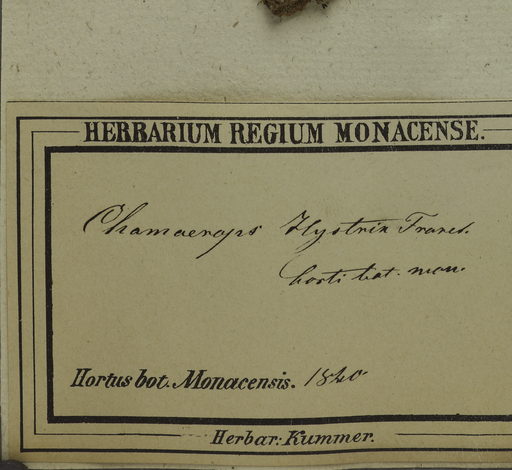 HERBARIUM REGIUM MONACENSE.
Chamaerops Hystrix
horti bot. mon.
Hortus bot. Monacensis. 1840
Herbar: Kummer.